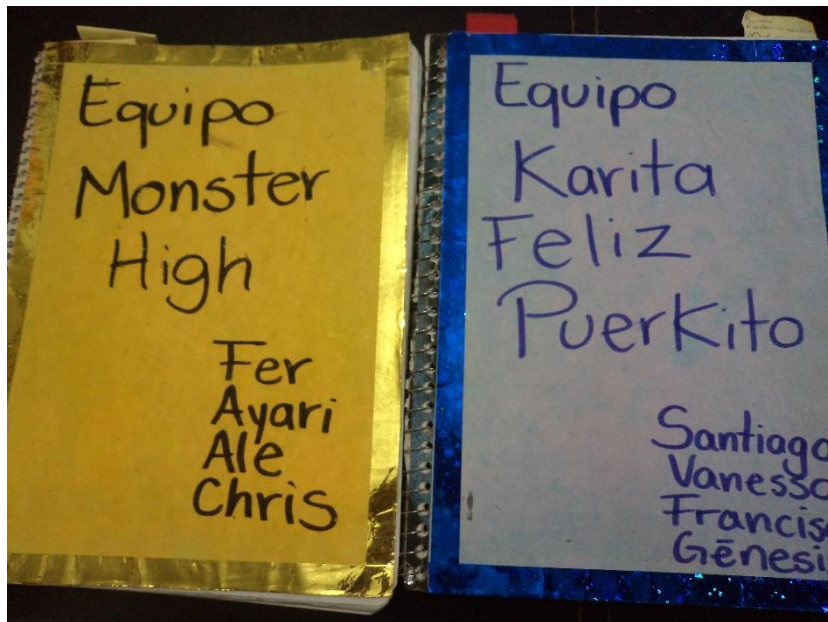 Equipo
Monster
High
Fer
Ayari
Ale
Chris
Equipo
Karita
Feliz
Puerkito
Santiago
Vanessa
Francis
Génesi